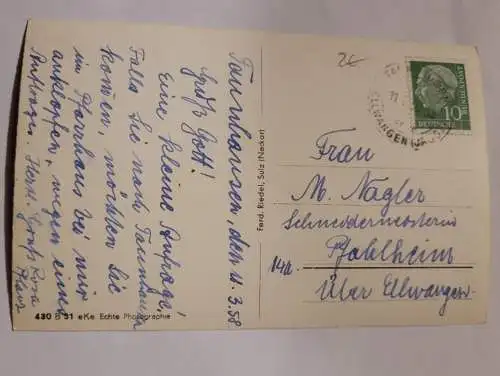 Tannhausen, den 11.3.58
Grüß Gott!
Eine kleine Anfrage!
Falls Sie nach Tannhausen
kommen, möchten Sie
im Pfarrhaus bei mir
anklopfen, wegen eines
Auftrages. Herzl. Gruß Rosa
430 B 51 eKe Echte Photographie
Ferd. Riedel, Sulz (Neckar)
2€
10
ELLWANGEN
Frau
M. Nagler
Schneidermeisterin
14a Pfahlheim
über Ellwangen